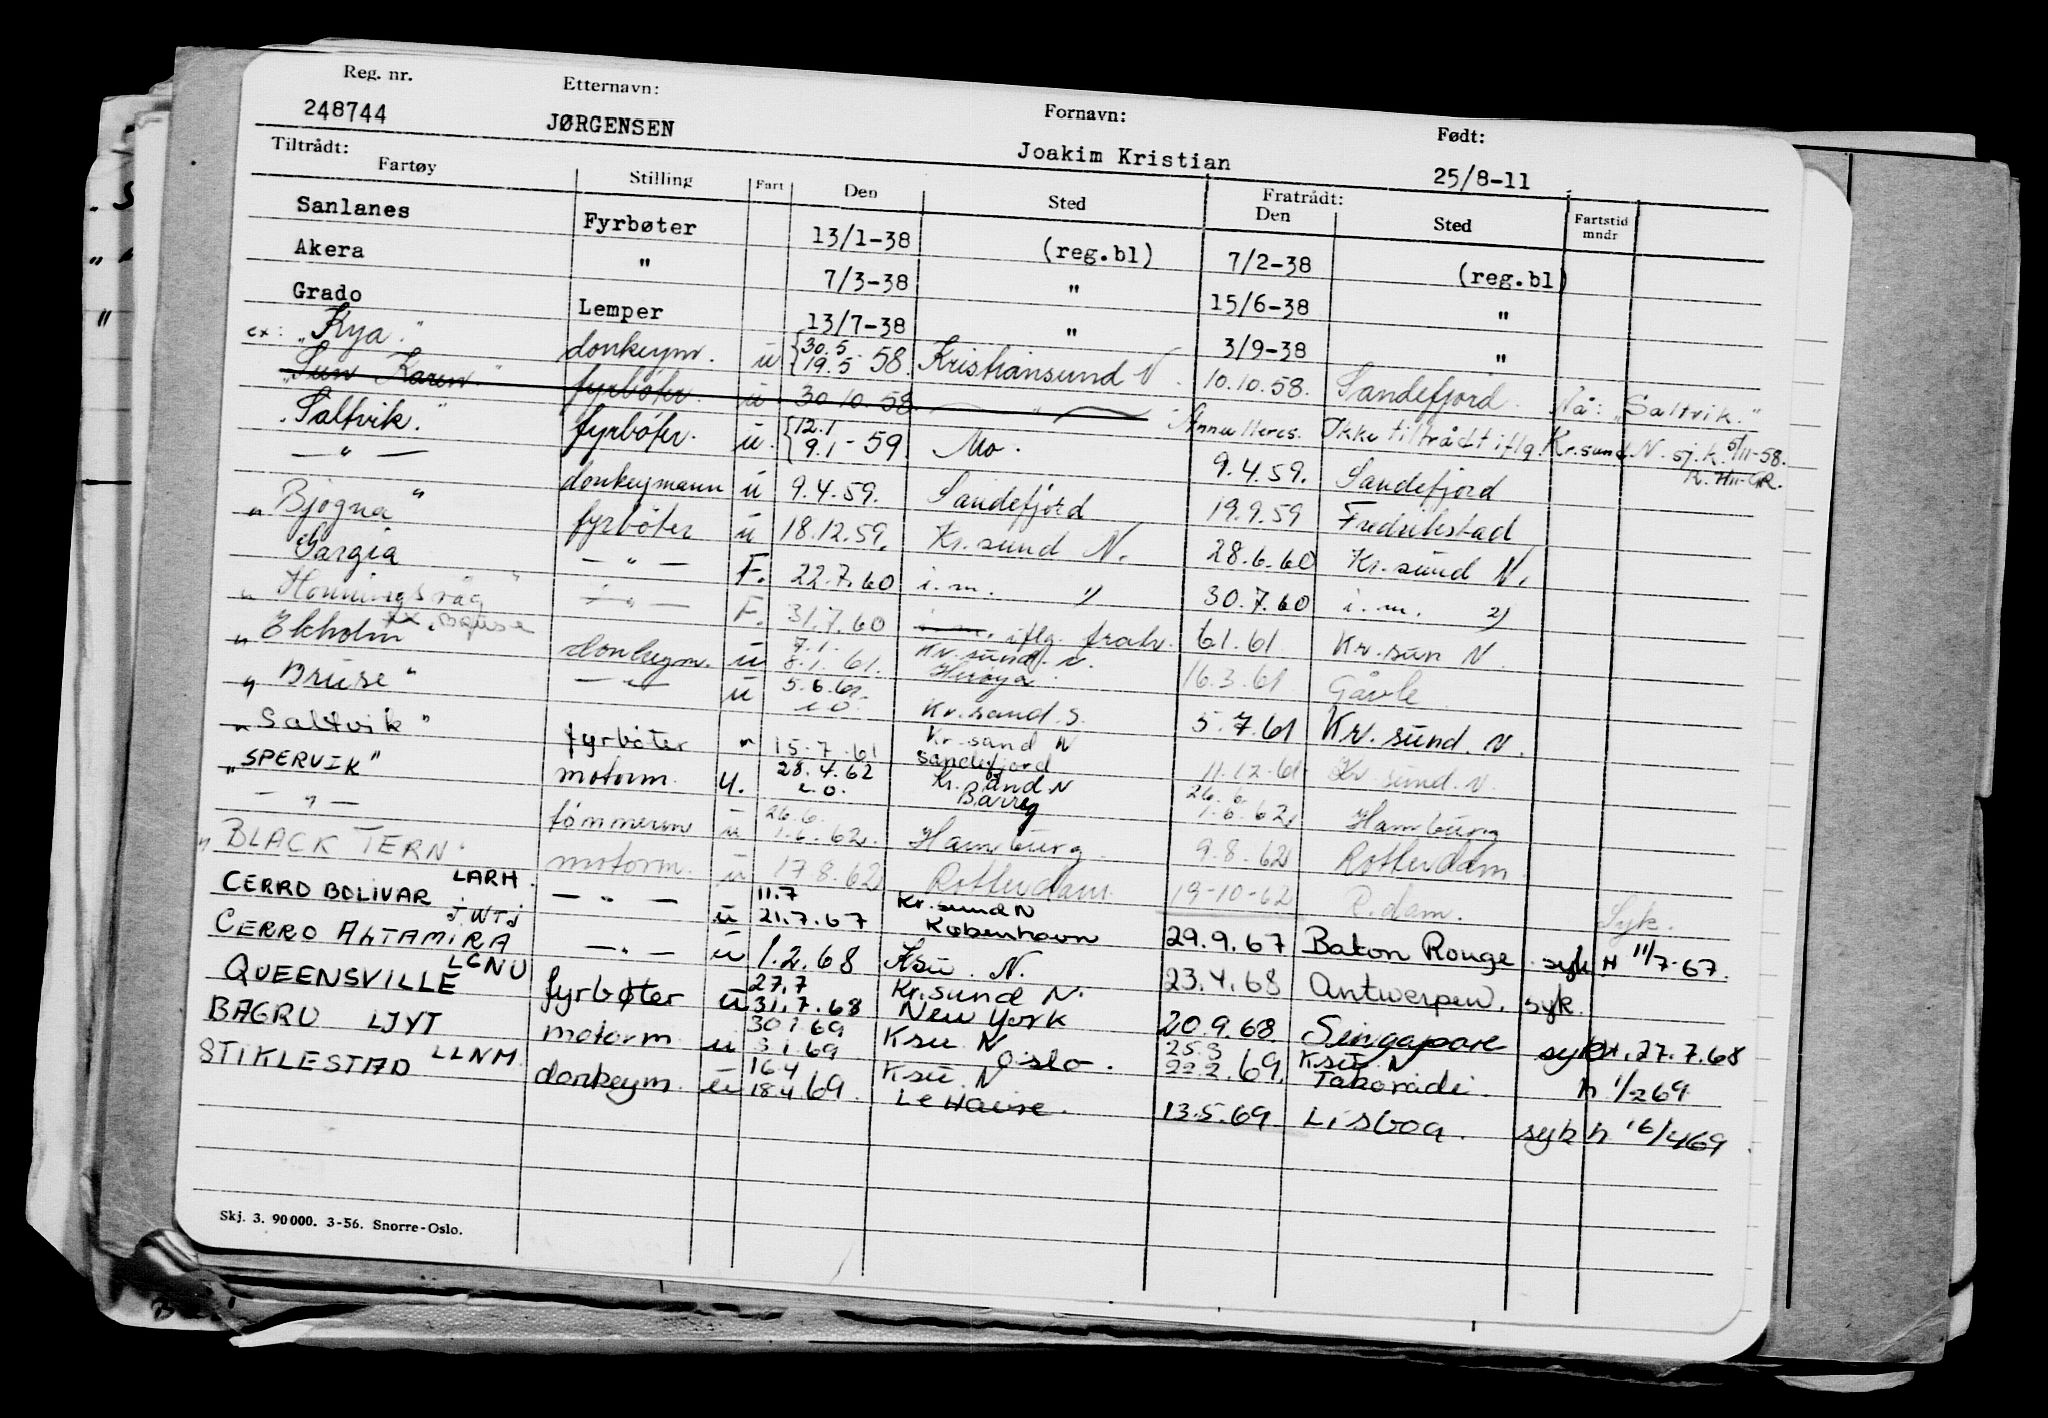 Reg. nr. Etternavn: Fornavn: Født:
248744 JØRGENSEN Joakim Kristian 25/8-11
Tiltrådt: Fratrådt:
Fartøy Stilling Fart Den Sted Den Sted Fartstid mndr
Sanlanes Fyrbøter 13/1-38 (reg.bl) 7/2-38 (reg.bl)
Akera " 7/3-38 " 15/6-38 "
Grado Lemper 13/7-38 " 3/9-38 "
ex: "Kya." donkeym. ü {30.5 19.5 58. Kristiansund N. 10.10.58. Sandefjord. Nå: "Saltvik."
"Sun Karen" fyrbøter. ü 30.10.58. — " — Ikke tiltrådt iflg Kr.sund N. sj.k. 5/11-58.
"Saltvik." fyrbøter. ü. {12.1 9.1-59 Mo. 9.4.59. Sandefjord
— " — donkeymann ü 9.4.59. Sandefjord 19.9.59 Fredrikstad
"Bjogna" fyrbøter ü 18.12.59. Kr.sund N. 28.6.60 Kr.sund N.
Sargia — " — F. 22.7.60 i.m. 1) 30.7.60 i.m. 2)
"Honningsvåg" — " — F. 31.7.60 i.m. iflg. fratr. 6.1.61 Kr.sun N.
"Ekholm" ex. Bruse donkeym. ü 7.1. 8.1.61. Kr.sund.N. Herøya 16.3.61 Gävle
"Bruse" — " — ü 5.6.61. i.o. Kr.sand.S. 5.7.61 Kr.sund.N.
"Saltvik" fyrbøter " 15.7.61 Kr.sand N 11.12.61 Kr.sund.N.
"SPERVIK" motorm. ü. 28.4.62 i.o. Sandefjord Kr.sund N Barry 26.6. 1.6.62. Hamburg
— " — tømmerm ü 26.6. 1.6.62. Hamburg. 9.8.62 Rotterdam.
"BLACK TERN" motorm. ü 17.8.62 Rotterdam. 19-10-62 R.dam. Syk.
CERRO BOLIVAR LARH. — " — ü 11.7 21.7.67 Kr.sund N København 29.9.67 Baton Rouge. syk H 11/7-67.
CERRO ALTAMIRA JWTJ — " — ü 1.2.68 Ksü. N. 23.4.68 Antwerpen. syk.
QUEENSVILLE LGNU fyrbøter ü 27.7 31.7.68 Kr.sund N. New York 20.9.68. Singapore syk H. 27.7.68
BAGRU LJYT motorm. ü 30.1.69 3.1.69 Ksü. N Oslo. 25.3 22.2.69. Ksü. N Takoradi. h 1/2 69.
STIKLESTAD LLNM donkeym. ü 16.4 18.4 69. Ksü. N Le Havre. 13.5.69 Lisboa. syk h 16/4 69
Skj. 3. 90000. 3-56. Snorre-Oslo.